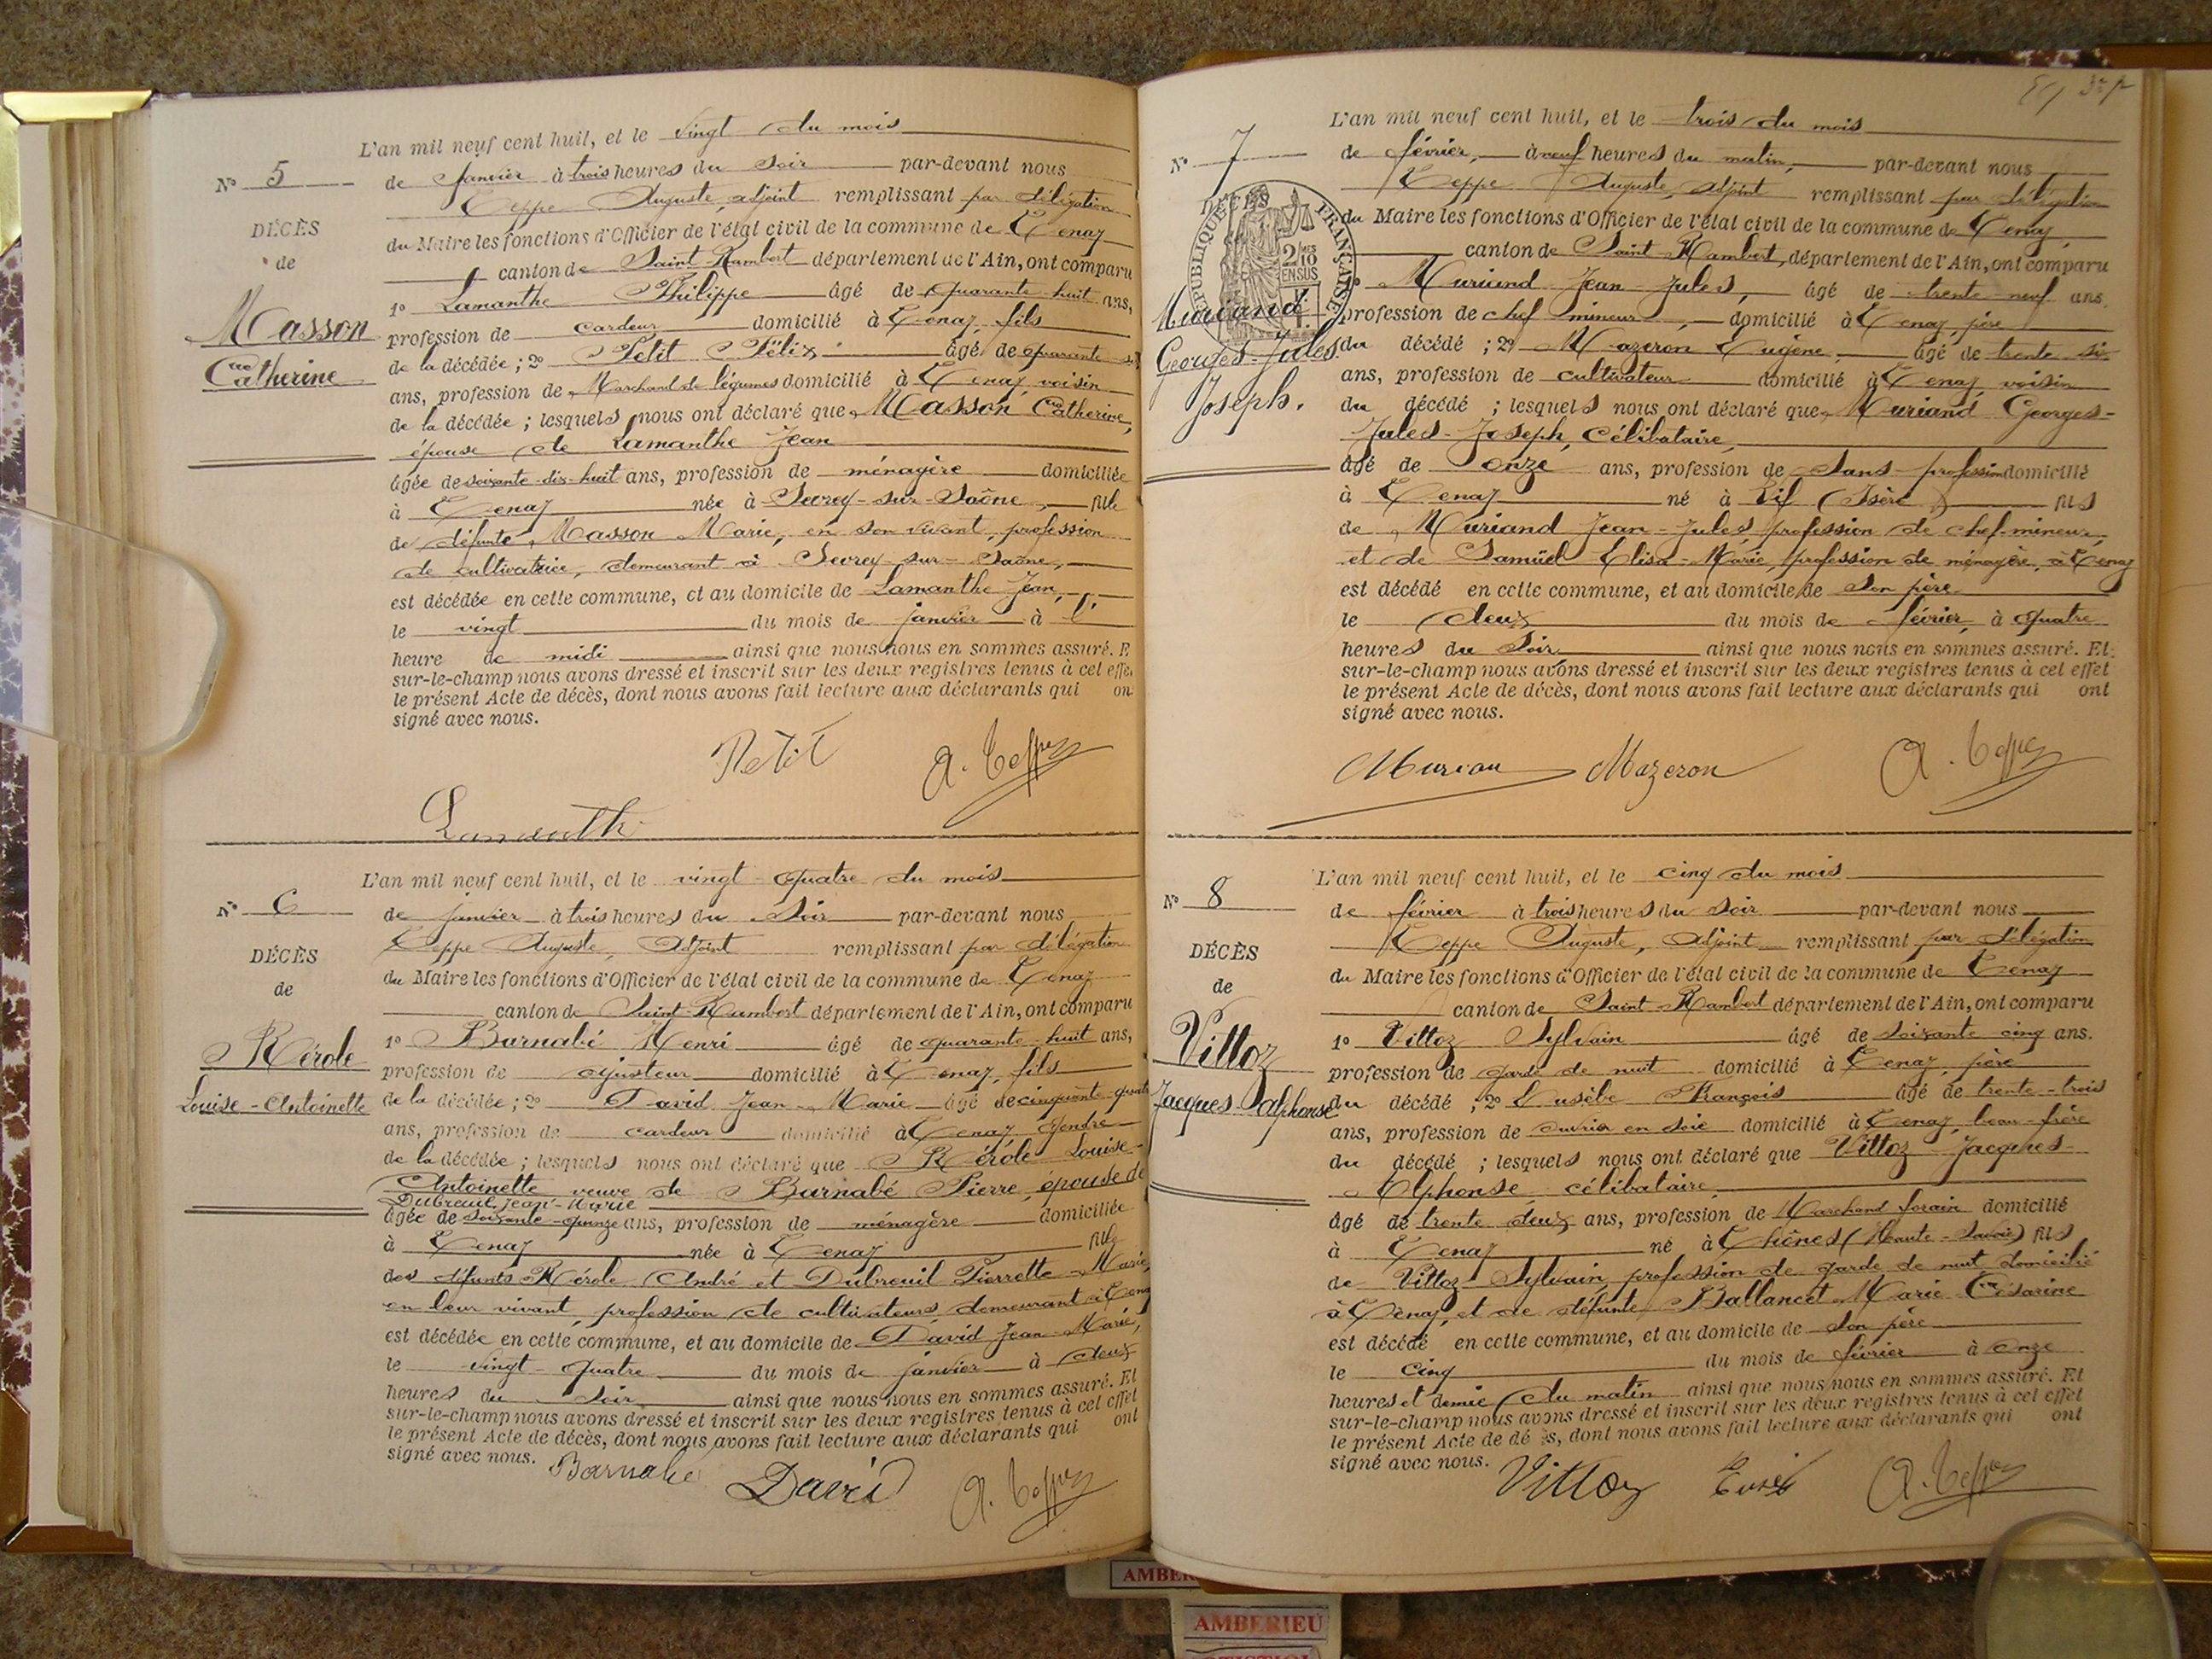 L'an mil neuf cent huit, et le vingt du mois
Nº 5
de Janvier à trois heures du Soir par-devant nous
Teppe Auguste, adjoint remplissant par délégation
DÉCÈS
du Maire les fonctions d'Officier de l'état civil de la commune de Tenay
de
canton de Saint-Rambert département de l'Ain, ont comparu
1º Lamanthe Philippe âgé de quarante-huit ans,
Masson
profession de cardeur domicilié à Tenay, fils
de la décédée; 2º Petit Félix âgé de quarante
Catherine
ans, profession de Marchand de légumes domicilié à Tenay, voisin
de la décédée; lesquels nous ont déclaré que Masson Catherine,
épouse de Lamanthe Jean
âgée de soixante-dix-huit ans, profession de ménagère domiciliée
à Tenay née à Sevrey-sur-Saône, fille
de défunte Masson Marie, en son vivant, profession
de cultivatrice, demeurant à Sevrey-sur-Saône,
est décédée en cette commune, et au domicile de Lamanthe Jean,
le vingt du mois de janvier à l'
heure de midi ainsi que nous nous en sommes assuré. E
sur-le-champ nous avons dressé et inscrit sur les deux registres tenus à cet effe
le présent Acte de décès, dont nous avons fait lecture aux déclarants qui on
signé avec nous.
Petit A. Teppe
Lamanth
L'an mil neuf cent huit, et le vingt-quatre du mois
Nº 6
de janvier à trois heures du Soir par-devant nous
Teppe Auguste, Adjoint remplissant par délégation
DÉCÈS
du Maire les fonctions d'Officier de l'état civil de la commune de Tenay
de
canton de Saint-Rambert département de l'Ain, ont comparu
1º Barnabé Henri âgé de quarante-huit ans,
Rérole
profession de ajusteur domicilié à Tenay, fils
Louise-Antoinette
de la décédée; 2º David Jean-Marie âgé de cinquante-quatre
ans, profession de cardeur domicilié à Tenay, Gendre
de la décédée; lesquels nous ont déclaré que Rérole Louise-
Antoinette veuve de Barnabé Pierre, épouse de
Dubreuil Jean-Marie
âgée de soixante-quinze ans, profession de ménagère domiciliée
à Tenay née à Tenay fille
des défunts Rérole André et Dubreuil Pierrette-Marie,
en leur vivant, profession de cultivateurs, demeurant à Tenay
est décédée en cette commune, et au domicile de David Jean-Marie,
le vingt-quatre du mois de janvier à deux
heures du Soir ainsi que nous nous en sommes assuré. Et
sur-le-champ nous avons dressé et inscrit sur les deux registres tenus à cet effet
le présent Acte de décès, dont nous avons fait lecture aux déclarants qui ont
signé avec nous.
Barnabé David A. Teppe
L'an mil neuf cent huit, et le trois du mois
Nº 7
de février, à neuf heures du matin, par-devant nous
Teppe Auguste, adjoint remplissant par délégation
DÉCÈS
RÉPUBLIQUE FRANÇAISE
2/10 EN SUS
du Maire les fonctions d'Officier de l'état civil de la commune de Tenay,
canton de Saint-Rambert, département de l'Ain, ont comparu
1º Muriand Jean Jules, âgé de trente-neuf ans,
Muriand
profession de chef mineur, domicilié à Tenay, père
Georges-Jules
du décédé; 2º Mazeron Eugène, âgé de trente-six
Joseph.
ans, profession de cultivateur domicilié à Tenay, voisin
du décédé; lesquels nous ont déclaré que Muriand Georges-
Jules-Joseph, célibataire,
âgé de onze ans, profession de Sans profession domicilié
à Tenay né à Vif (Isère) fils
de Muriand Jean-Jules, profession de chef-mineur,
et de Samuël Elisa-Marie, profession de ménagère, à Tenay
est décédé en cette commune, et au domicile de Son père
le deux du mois de février, à quatre
heures du Soir ainsi que nous nous en sommes assuré. Et
sur-le-champ nous avons dressé et inscrit sur les deux registres tenus à cet effet
le présent Acte de décès, dont nous avons fait lecture aux déclarants qui ont
signé avec nous.
Murian Mazeron A. Teppe
L'an mil neuf cent huit, et le cinq du mois
Nº 8
de février à trois heures du Soir par-devant nous
Teppe Auguste, Adjoint remplissant par délégation
DÉCÈS
du Maire les fonctions d'Officier de l'état civil de la commune de Tenay
de
canton de Saint-Rambert département de l'Ain, ont comparu
1º Vittoz Sylvain âgé de soixante cinq ans.
Vittoz
profession de garde de nuit domicilié à Tenay, père
Jacques Alphonse
du décédé; 2º Eusèbe François âgé de trente-trois
ans, profession de ouvrier en soie domicilié à Tenay, beau-frère
du décédé; lesquels nous ont déclaré que Vittoz Jacques-
Alphonse, célibataire,
âgé de trente-deux ans, profession de Marchand forain domicilié
à Tenay né à Thônes (Haute-Savoie) fils
de Vittoz Sylvain, profession de garde de nuit domicilié
à Tenay, et de défunte Ballancet Marie-Césarine
est décédé en cette commune, et au domicile de Son père
le cinq du mois de février à onze
heures et demie du matin ainsi que nous nous en sommes assuré. Et
sur-le-champ nous avons dressé et inscrit sur les deux registres tenus à cet effet
le présent Acte de dé ès, dont nous avons fait lecture aux déclarants qui ont
signé avec nous.
Vittoz A. Teppe
AMBER
AMBERIEU